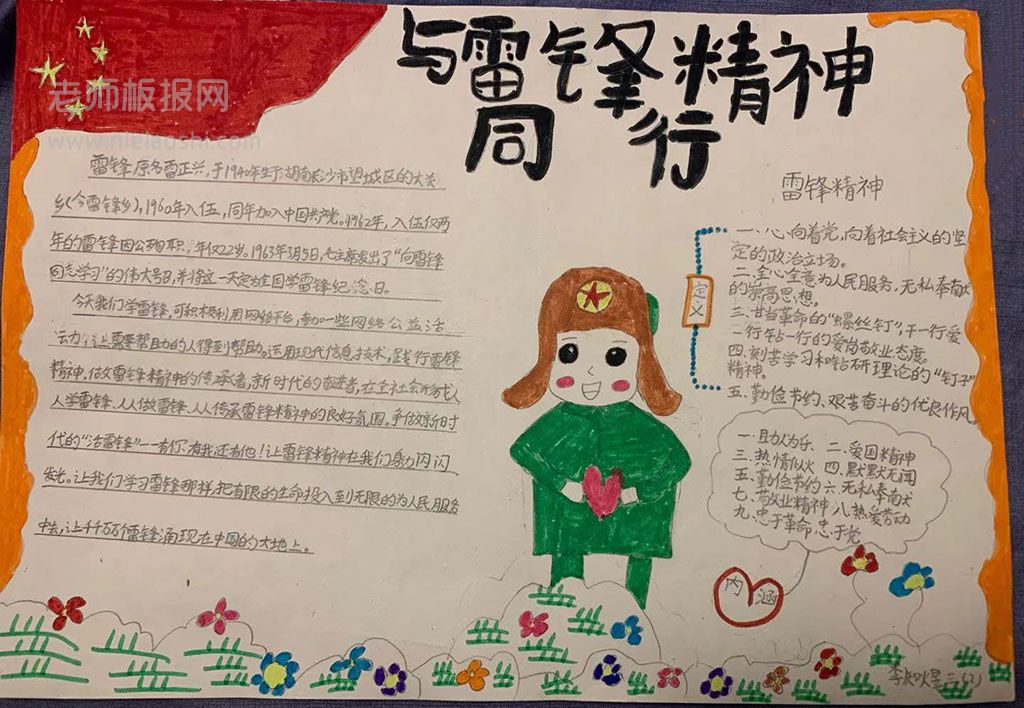 与雷锋精神
同行
老师板报网
雷锋原名雷正兴,于1940年生于湖南长沙市望城区的大炎
乡(今雷锋乡),1960年入伍,同年加入中国共产党。1962年,入伍仅两
年的雷锋因公殉职,年仅22岁。1963年3月5日,毛主席发出了“向雷锋
同志学习”的伟大号召,并将这一天定为全国学雷锋纪念日。
今天我们学雷锋,可积极利用网络平台,参加一些网络公益活
动力,让需要帮助的人得到帮助。运用现代信息技术,践行雷锋
精神,做雷锋精神的传承者,新时代的奋进者,在全社会形成人
人学雷锋、人人做雷锋、人人传承雷锋精神的良好氛围。争做新时
代的“活雷锋”一有你有我还有他!让雷锋精神在我们身力闪闪
发光。让我们学习雷锋那样,把有限的生命投入到无限的为人民服务
中去,让千千万万个雷锋涌现在中国的大地上。
雷锋精神
定义
一、心向着党,向着社会主义的坚
定的政治立场。
二、全心全意为人民服务,无私奉献
的崇高思想。
三、甘当革命的“螺丝钉”,干一行爱
一行钻一行的爱岗敬业态度。
四、刻苦学习和钻研理论的“钉子”
精神。
五、勤俭节约、艰苦奋斗的优良作风。
一、助人为乐 二、爱国精神
三、热情似火 四、默默无闻
五、勤俭节约 六、无私奉献
七、敬业精神 八、热爱劳动
九、忠于革命忠于党
内涵
三(2)